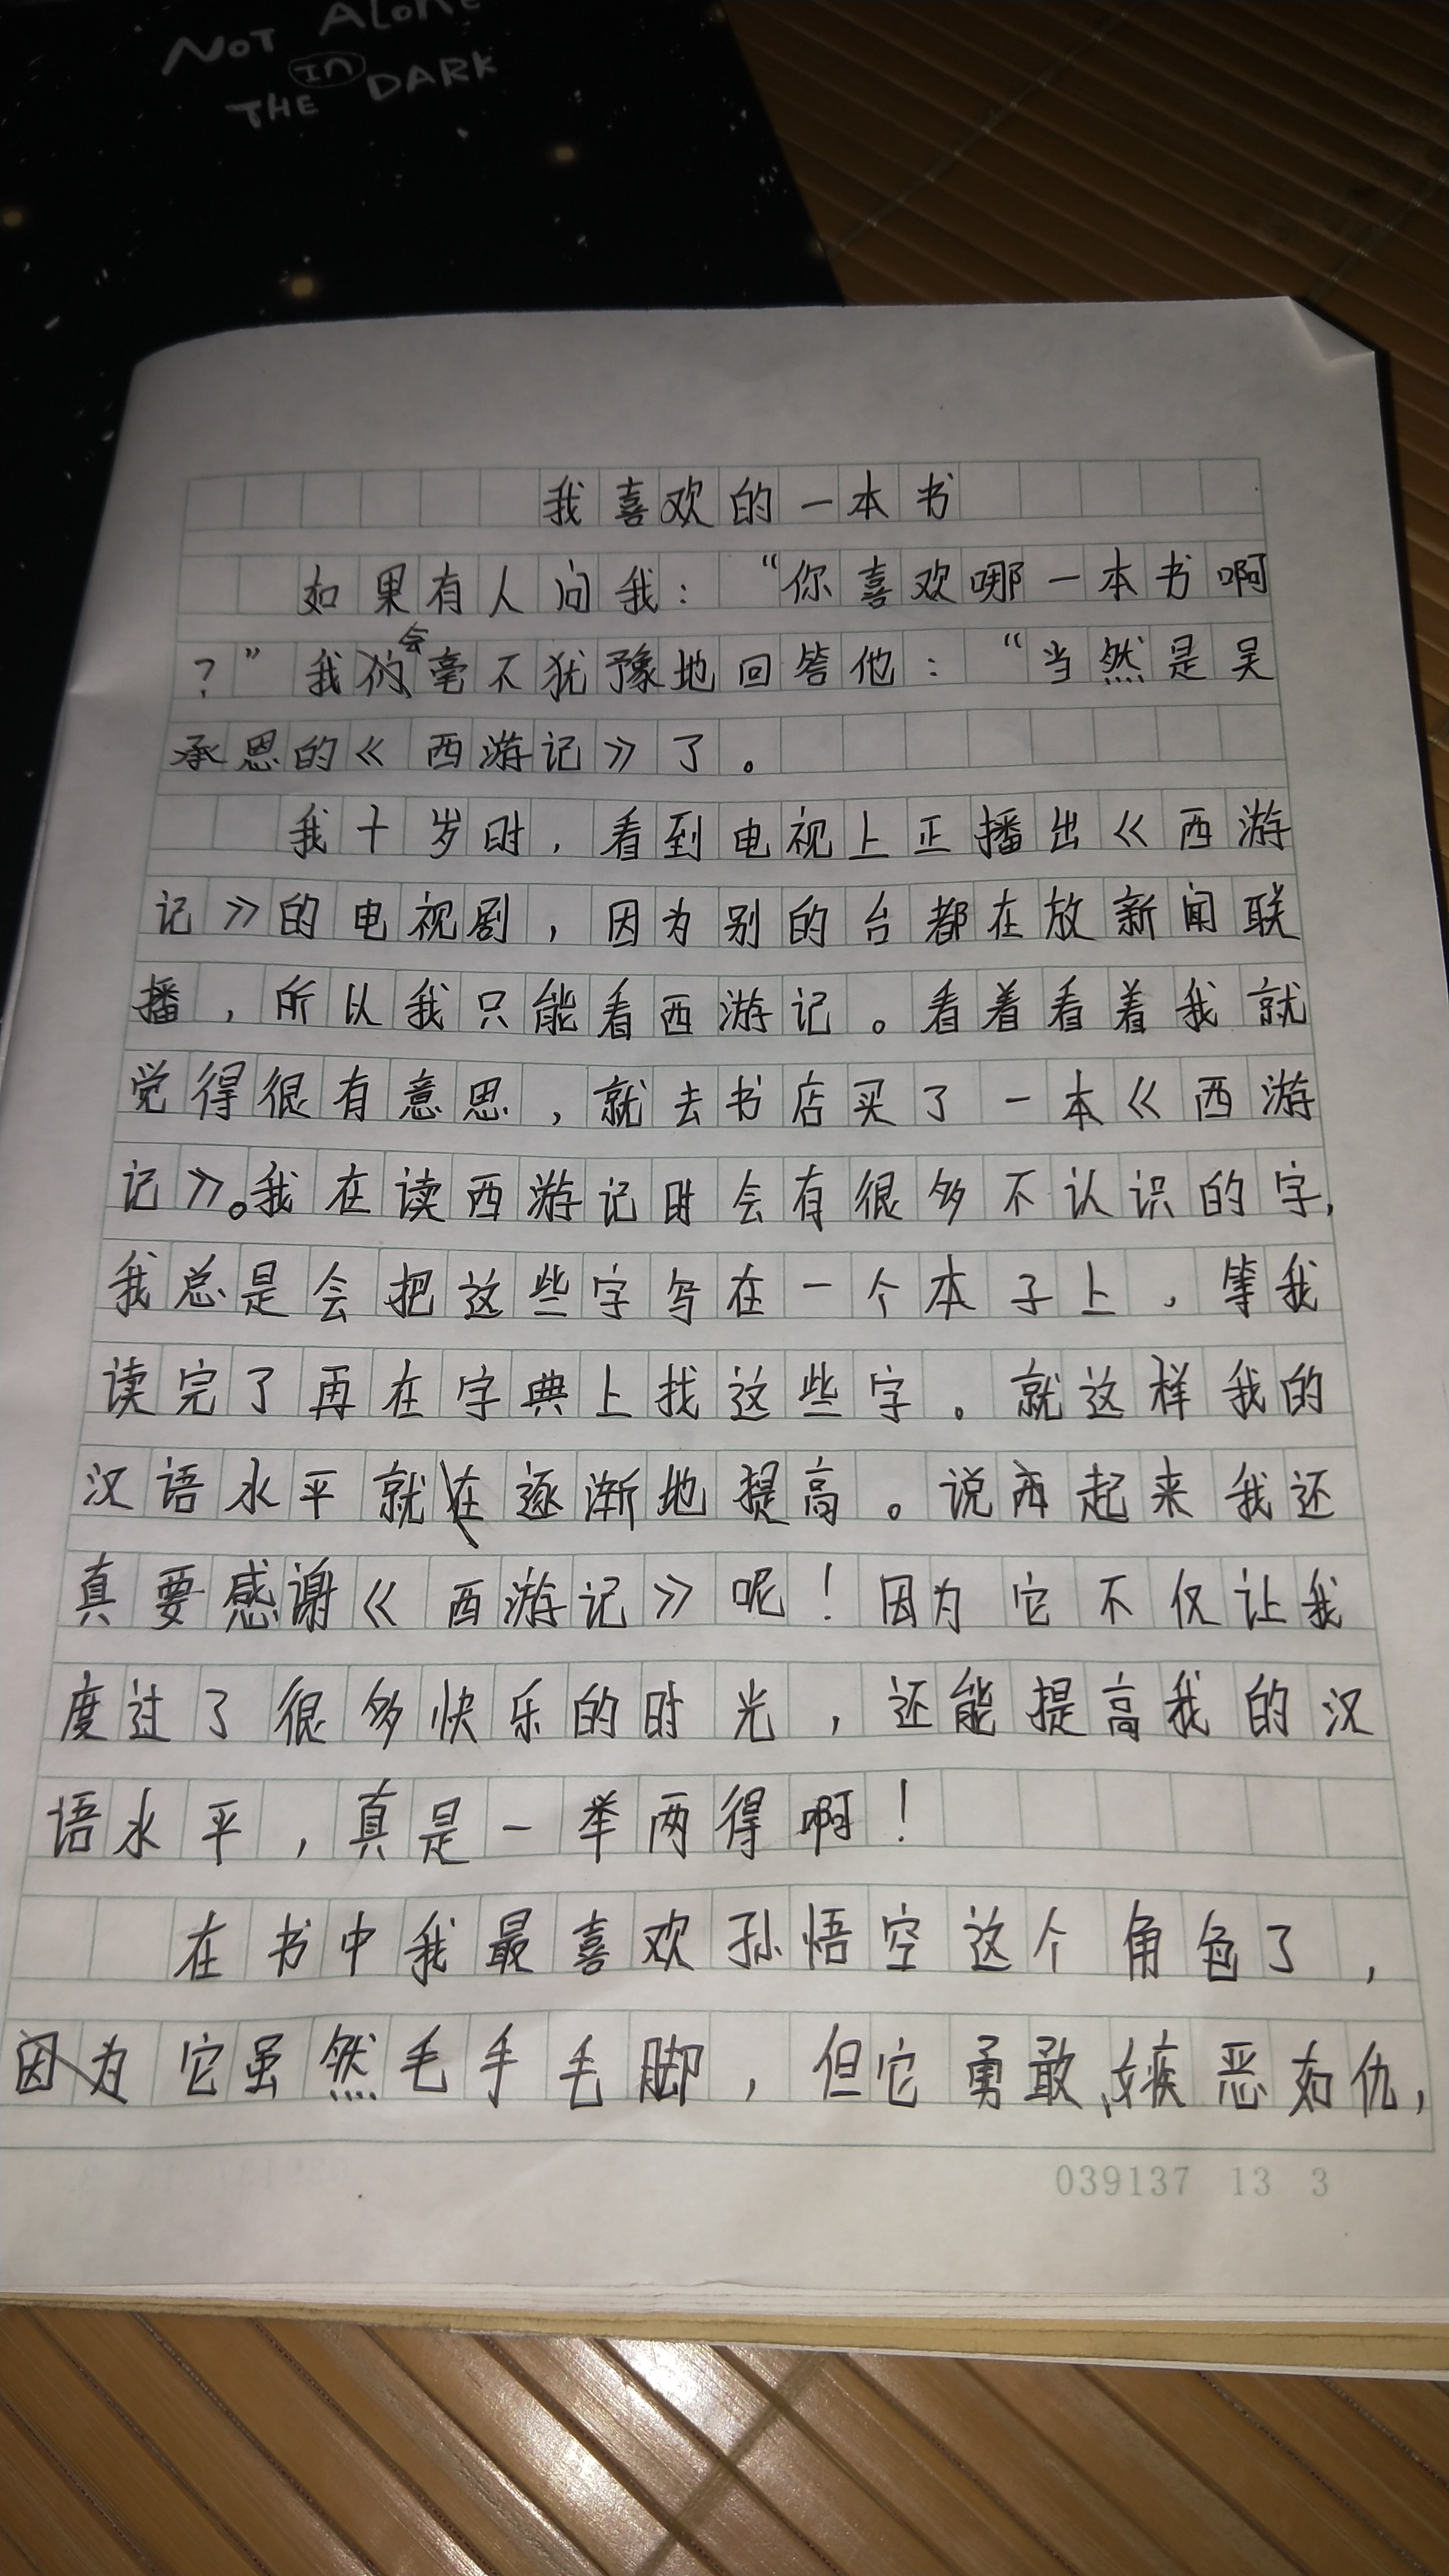 NOT ALONE
IN
THE DARK
我喜欢的一本书
如果有人问我：“你喜欢哪一本书啊
？”我会毫不犹豫地回答他：“当然是吴
承恩的《西游记》了。
我十岁时，看到电视上正播出《西游
记》的电视剧，因为别的台都在放新闻联
播，所以我只能看西游记。看着看着我就
觉得很有意思，就去书店买了一本《西游
记》。我在读西游记时会有很多不认识的字，
我总是会把这些字写在一个本子上，等我
读完了再在字典上找这些字。就这样我的
汉语水平就逐渐地提高。说再起来我还
真要感谢《西游记》呢！因为它不仅让我
度过了很多快乐的时光，还能提高我的汉
语水平，真是一举两得啊！
在书中我最喜欢孙悟空这个角色了，
因为它虽然毛手毛脚，但它勇敢、嫉恶如仇，
039137 13 3